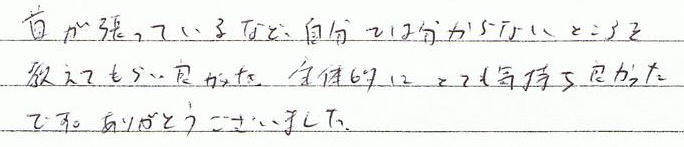 首が張っているなど、自分では分からないところを
教えてもらい良かった 全体的に とても気持ち良かった
です。ありがとうございました。